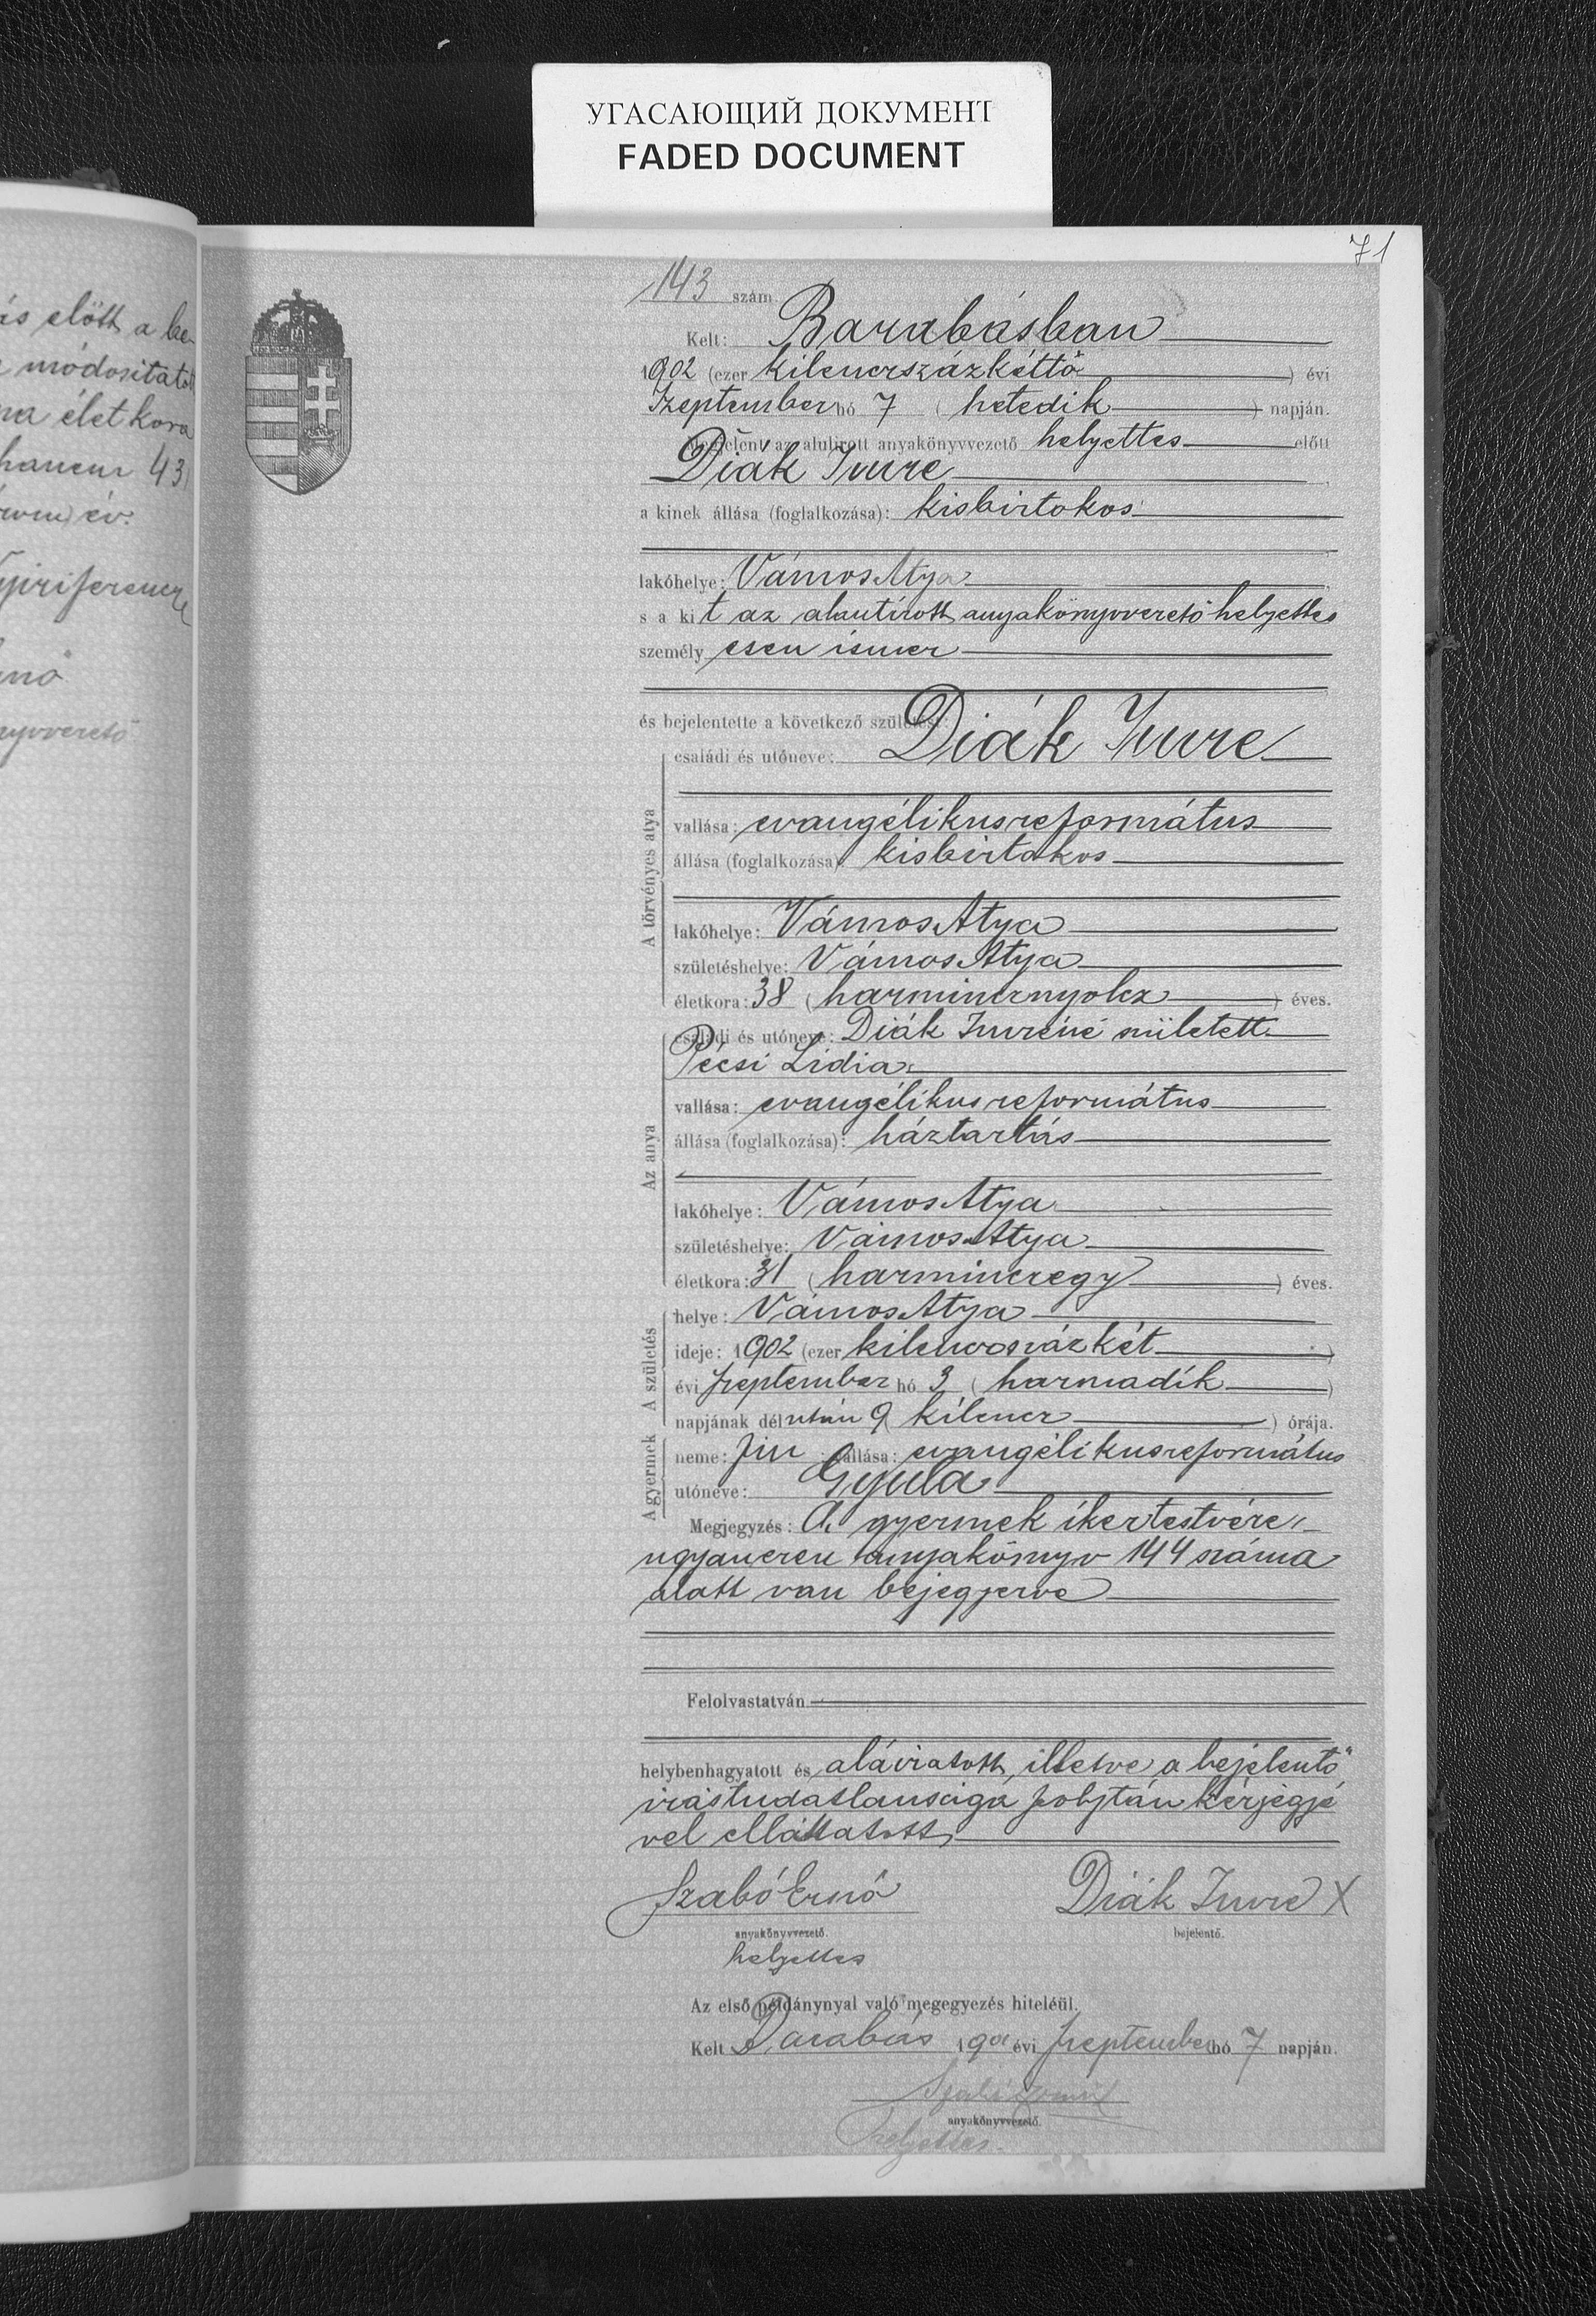 УГАСАЮЩИЙ ДОКУМЕНТ
FADED DOCUMENT
71
és előtt a be-
módositatott
ma életkora
43
év.
Nyiriferencz
143 szám.
Kelt: Barabásban
1902 (ezer kilenczszázkéttő ) évi
Szeptember hó 7 ( hetedik ) napján.
Megjelent az alulirott anyakönyvvezető helyettes előtt
Diák Imre
a kinek állása (foglalkozása): kisbirtokos
lakóhelye: VámosAtya
s a kit az alantírott anyakönyvvezető helyettes
személyesen ismer
és bejelentette a következő születést:
A törvényes atya
családi és utóneve: Diák Imre
vallása: evangélikusreformátus
állása (foglalkozása): kisbirtokos
lakóhelye: VámosAtya
születéshelye: VámosAtya
életkora: 38 ( harmincznyolcz ) éves.
Az anya
családi és utóneve: Diák Imréné született
Pécsi Lidia
vallása: evangélikusreformátus
állása (foglalkozása): háztartás
lakóhelye: VámosAtya
születéshelye: VámosAtya
életkora: 31 ( harminczegy ) éves.
A születés
helye: VámosAtya
ideje: 1902 (ezer kilenczszázkét )
évi Szeptember hó 3 ( harmadik )
napjának délután 9 ( kilencz ) órája.
A gyermek
neme: fiu vallása: evangélikusreformátus
utóneve: Gyula
Megjegyzés: A gyermek íkertestvére
ugyanezen anyakönyv 144 száma
alatt van bejegyezve
Felolvastatván
helybenhagyatott és aláiratott, illetve a bejelentő
irástudatlansága folytán kézjegyé
vel elláttatott
Szabó Ernő Diák Imre X
anyakönyvvezető. bejelentő.
helyettes
Az első példánynyal való megegyezés hiteléül.
Kelt Barabás 1902 évi Szeptember hó 7 napján.
Szabó Ernő
anyakönyvvezető.
helyettes